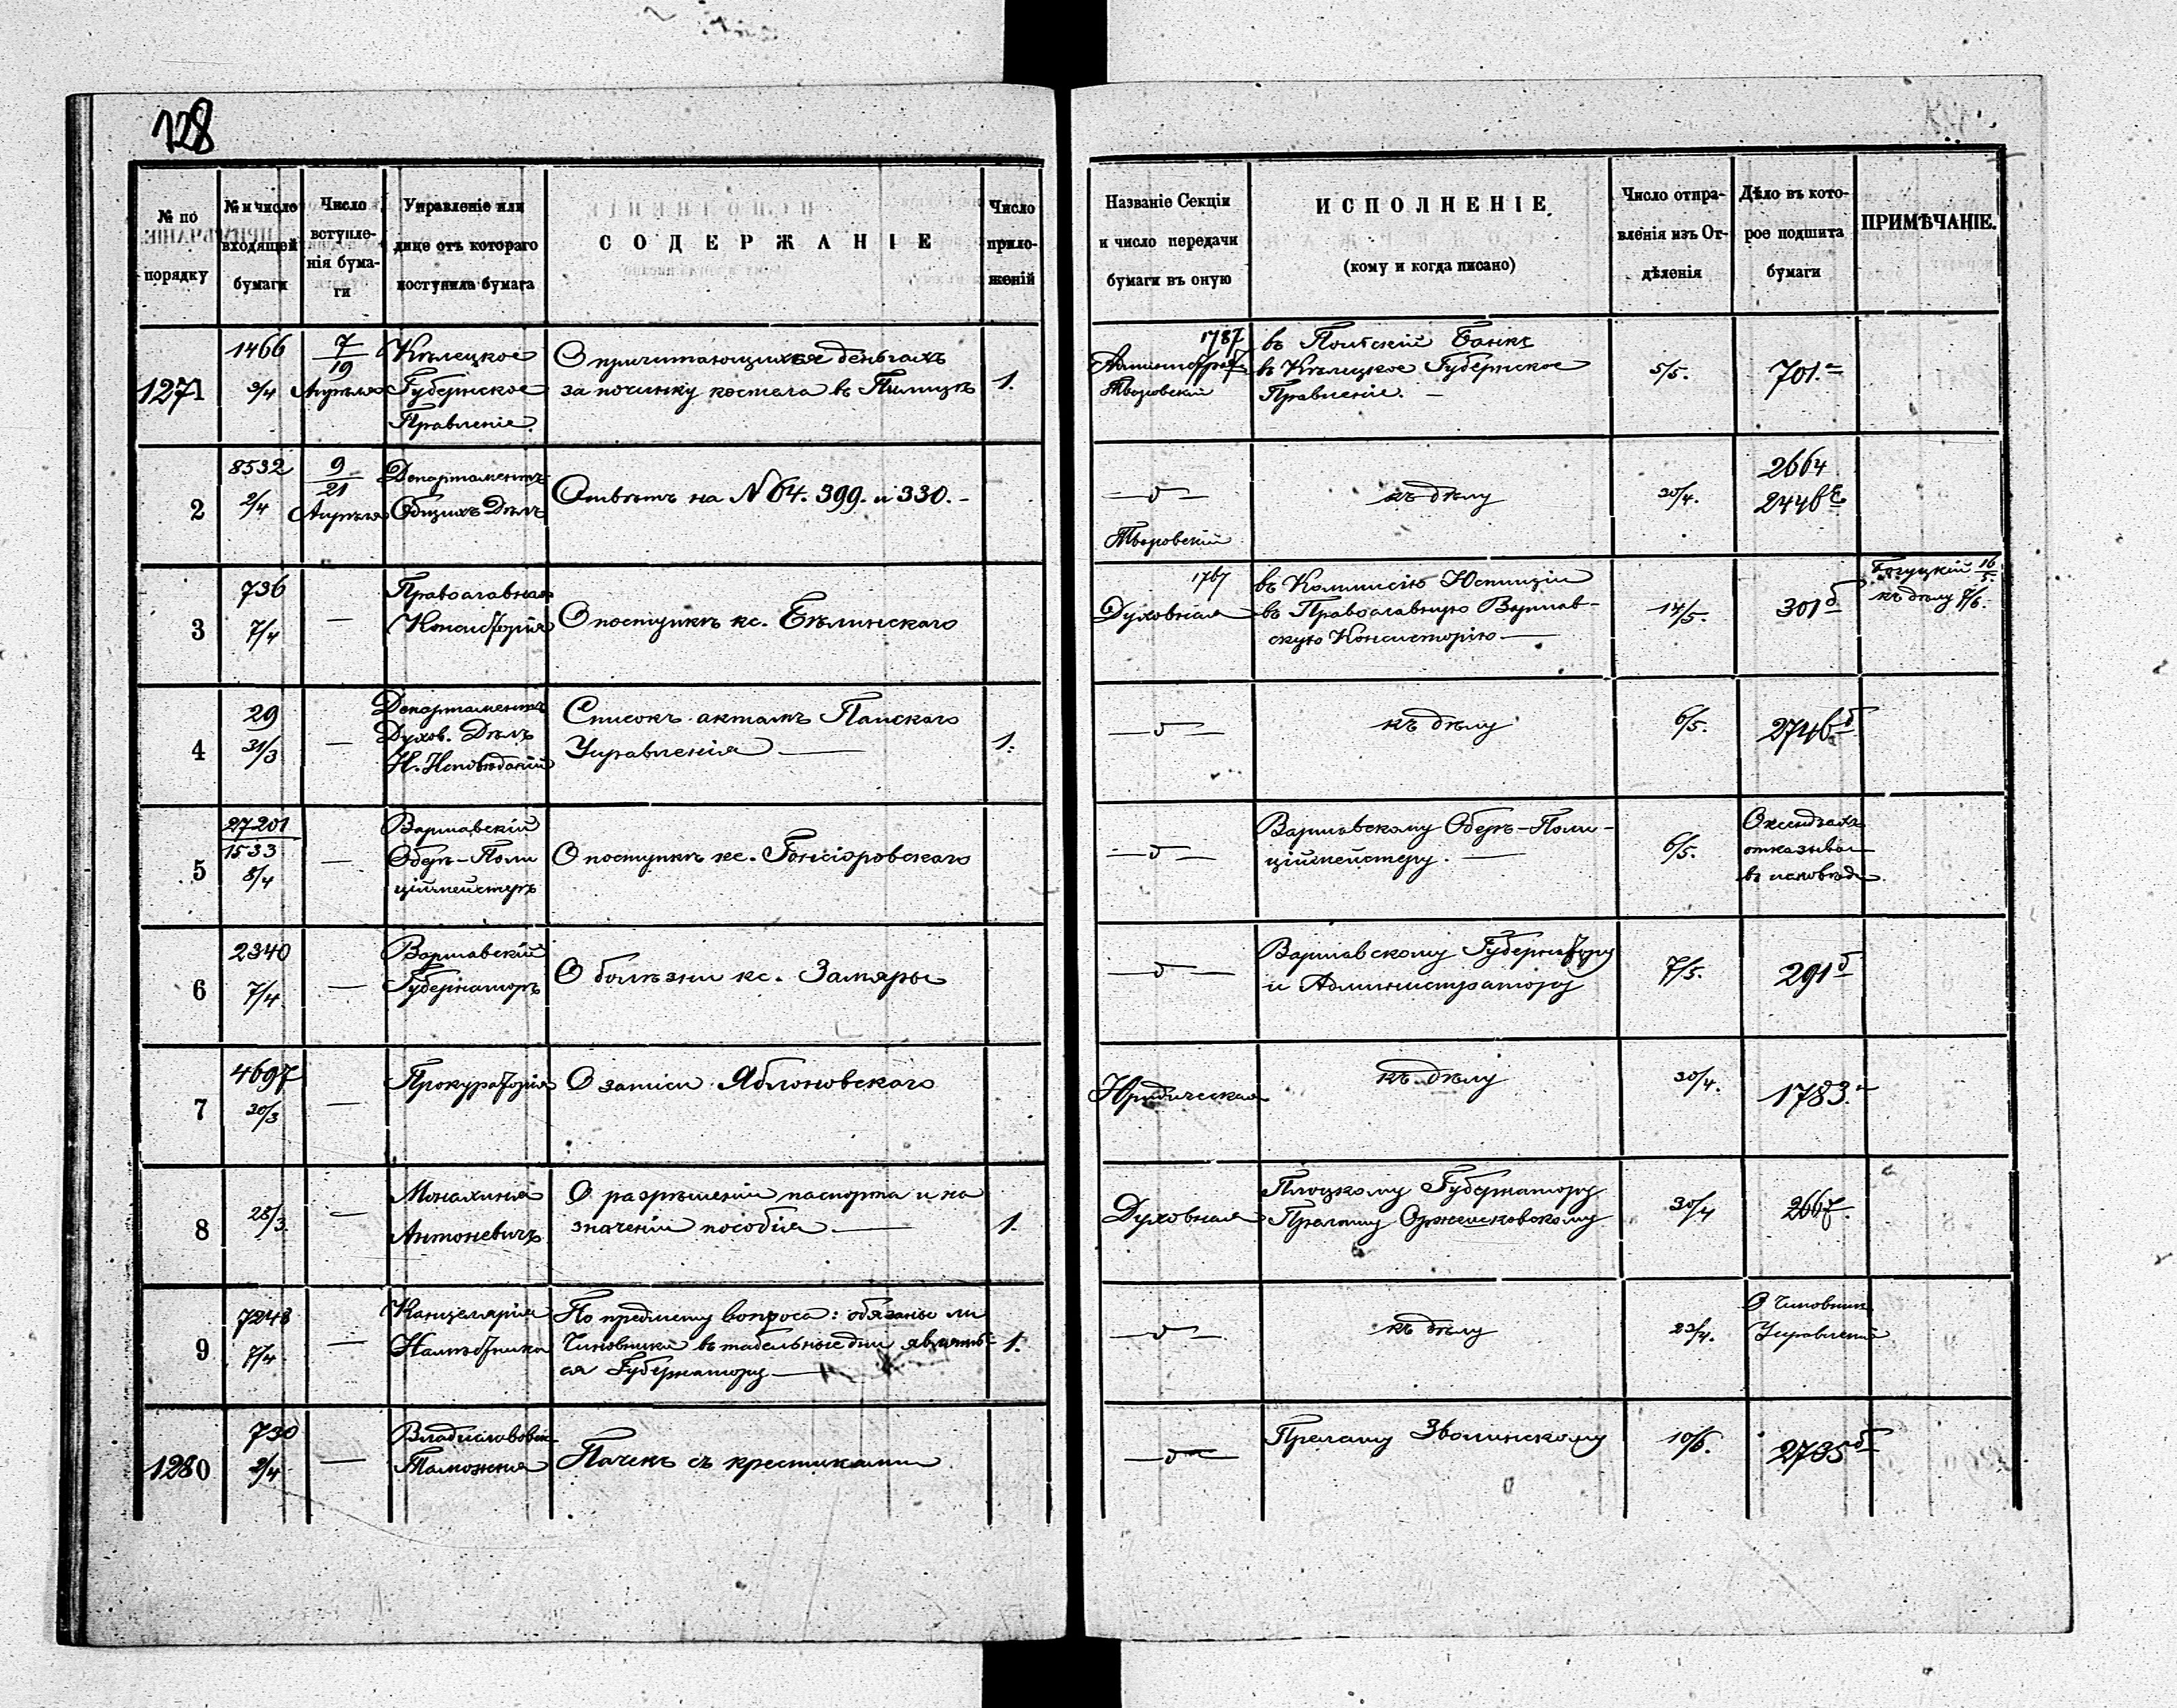 128
№ по порядку
№ и число входящей бумаги
Число вступленія бумаги
Управленіе или лице отъ котораго поступила бумага
СОДЕРЖАНІЕ
Число приложеній
Названіе Секціи и число передачи бумаги въ оную
ИСПОЛНЕНІЕ.
(кому и когда писано)
Число отправленія изъ Отдѣленія
Дѣло въ которое подшита бумаги
ПРИМѢЧАНІЕ.
1271
1466
9/4
7/19 Апрѣля
Кѣлецкое
Губернское
Правленіе
О причитающихся деньгахъ
за починку костела въ Пилицѣ
1.
1787
Творовскій
въ Польскій Банкъ
въ Кѣлецкое Губернское
Правленіе. —
5/5.
701.
2
8532
2/4
9/21 Апрѣля
Департаментъ
Общихъ Дѣлъ
Отвѣтъ на № 64. 399. и 330. –
Творовскій
къ дѣлу
30/4.
2664
3
736
7/4
—
Православная
Консисторія
О поступкѣ кс. Бѣлинскаго
1767
Духовная
въ Коммисію Юстиціи
въ Православную Варшав-
скую Консисторію —
14/5.
301 б
16/5
къ дѣлу 7/6.
4
29
31/3
—
Департаментъ
Духов. Дѣлъ
И. Исповѣданій
Списокъ актамъ
Управленія —
1.
—д—
къ дѣлу
6/5.
5
27201
1533
8/4
—
Варшавскій
Оберъ-Поли
ціймейстеръ
О поступкѣ кс. Гонсіоровскаго
—д—
Варшавскому Оберъ-Поли-
ціймейстеру. —
6/5.
въ исповѣди
6
2340
7/4
—
Варшавскій
Губернаторъ
О болѣзни кс. Замяры
—д—
Варшавскому Губернатору
и Администратору
7/5.
291 б
7
4697
30/3
—
Прокураторія
О записи Яблоновскаго
Юридическая
къ дѣлу
30/4.
1783.
8
28/3.
—
Монахиня
Антоневичъ
О разрѣшеніи паспорта и на
значеніи пособія —
1.
Духовная
Плоцкому Губернатору
Прелату
30/4
2667.
9
7248
7/4
—
Канцелярія
Намѣстника
По предмету вопроса: обязаны ли
Чиновники въ табельные дни являть-
ся Губернатору —
1.
—д—
къ дѣлу
23/4.
О Чиновник.
Управленія
1280
730
9/4
—
Таможня
Пачекъ съ крестиками
—д—
Прелату Зволинскому
10/6.
2735 б